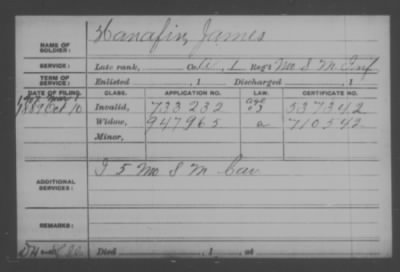 NAME OF SOLDIER: Hanafin, James
SERVICE: Late rank, Co. 1 Reg't Mo S M Inf
TERM OF SERVICE: Enlisted , 1 Discharged , 1
DATE OF FILING. CLASS. APPLICATION NO. LAW. CERTIFICATE NO.
1889 Oct 10 Invalid, 733232 537342
Widow, 947965 a 710542
Minor,
ADDITIONAL SERVICES: I 5 Mo S M Cav
REMARKS:
Died , 1 at